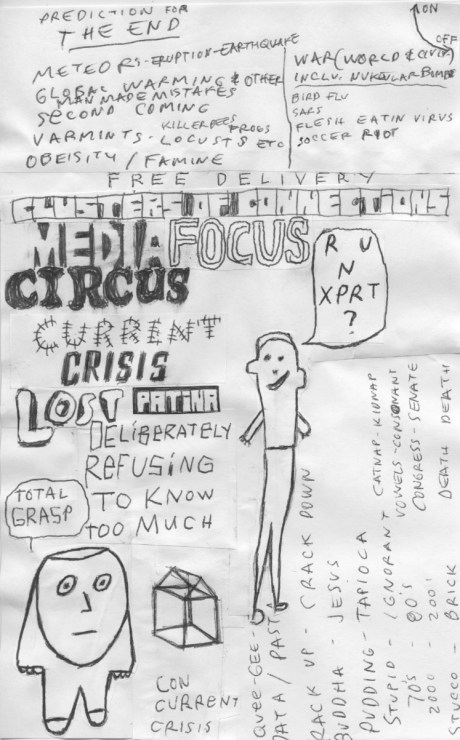 PREDICTION FOR
THE END
METEORS-ERUPTION-EARTHQUAKE
GLOBAL WARMING & OTHER
MAN MADE MISTAKES
SECOND COMING
KILLER BEES FROGS
VARMINTS - LOCUSTS ETC
OBEISITY / FAMINE
ON
OFF
WAR (WORLD & CIVIL)
INCLU. NUKULAR BOMBS
BIRD FLU
SARS
FLESH EATIN VIRUS
SOCCER RIOT
FREE DELIVERY
CLUSTERS OF CONNECTIONS
MEDIA FOCUS
CIRCUS
CURRENT
CRISIS
LOST PATINA
DELIBERATELY
REFUSING
TO KNOW
TOO MUCH
R U
N
XPRT
?
TOTAL
GRASP
CON
CURRENT
CRISIS
QUEE-GEE-
DATA / PAST
CRACK UP - CRACK DOWN
BUDDHA - JESUS
PUDDING - TAPIOCA
STUPID - IGNORANT CATNAP-KIDNAP
VOWELS-CONSONANT
70'S - 80'S CONGRESS-SENATE
2000 - 2001
STUCCO - BRICK DEATH DEATH